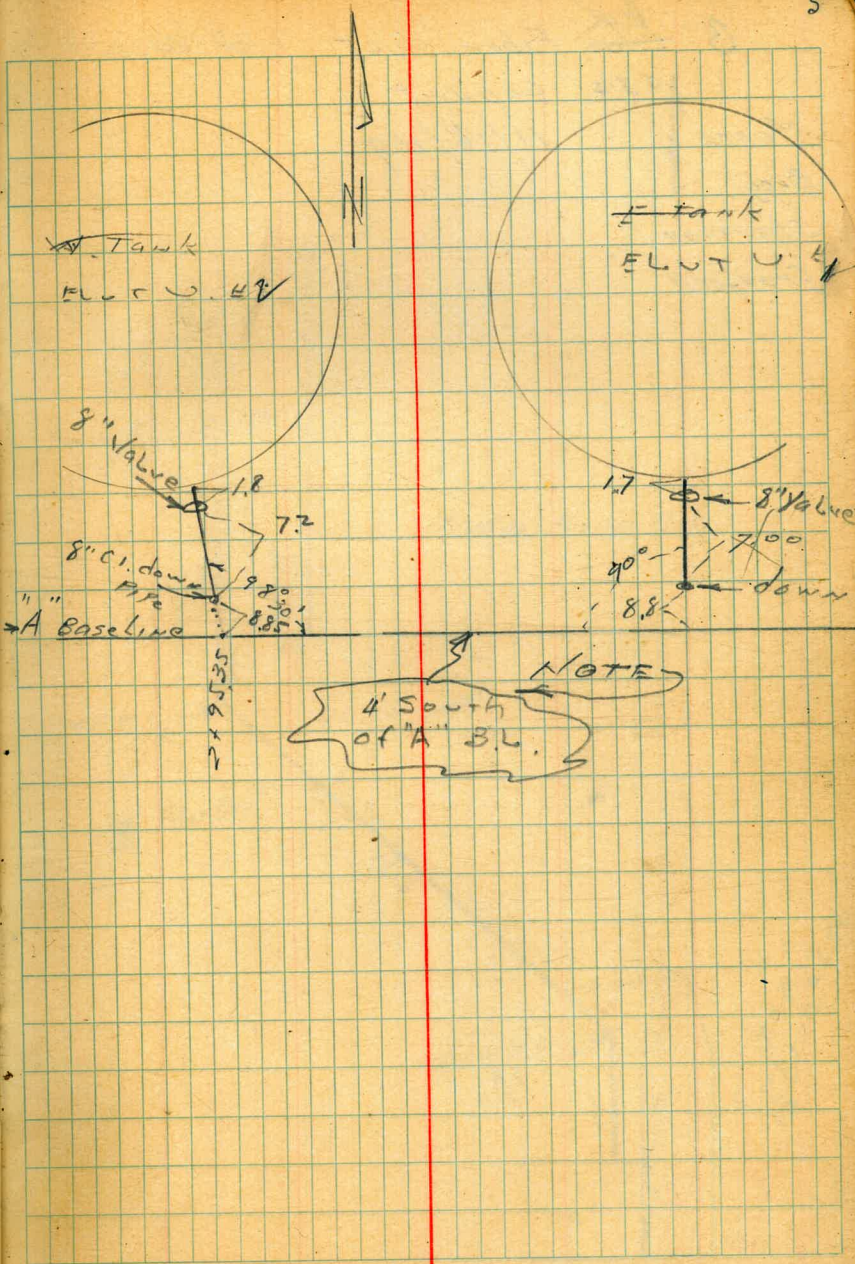 N
W. Tank
ELUT U. #2
E Tank
ELUT U. #1
8" Valve
1.8
7.2
8" C.I. down
PIPE
98°
8.85
"A" Baseline
2+95.35
1.7
8" Valve
7.00
90°
down
8.8
NOTE
4' South
of "A" B.L.